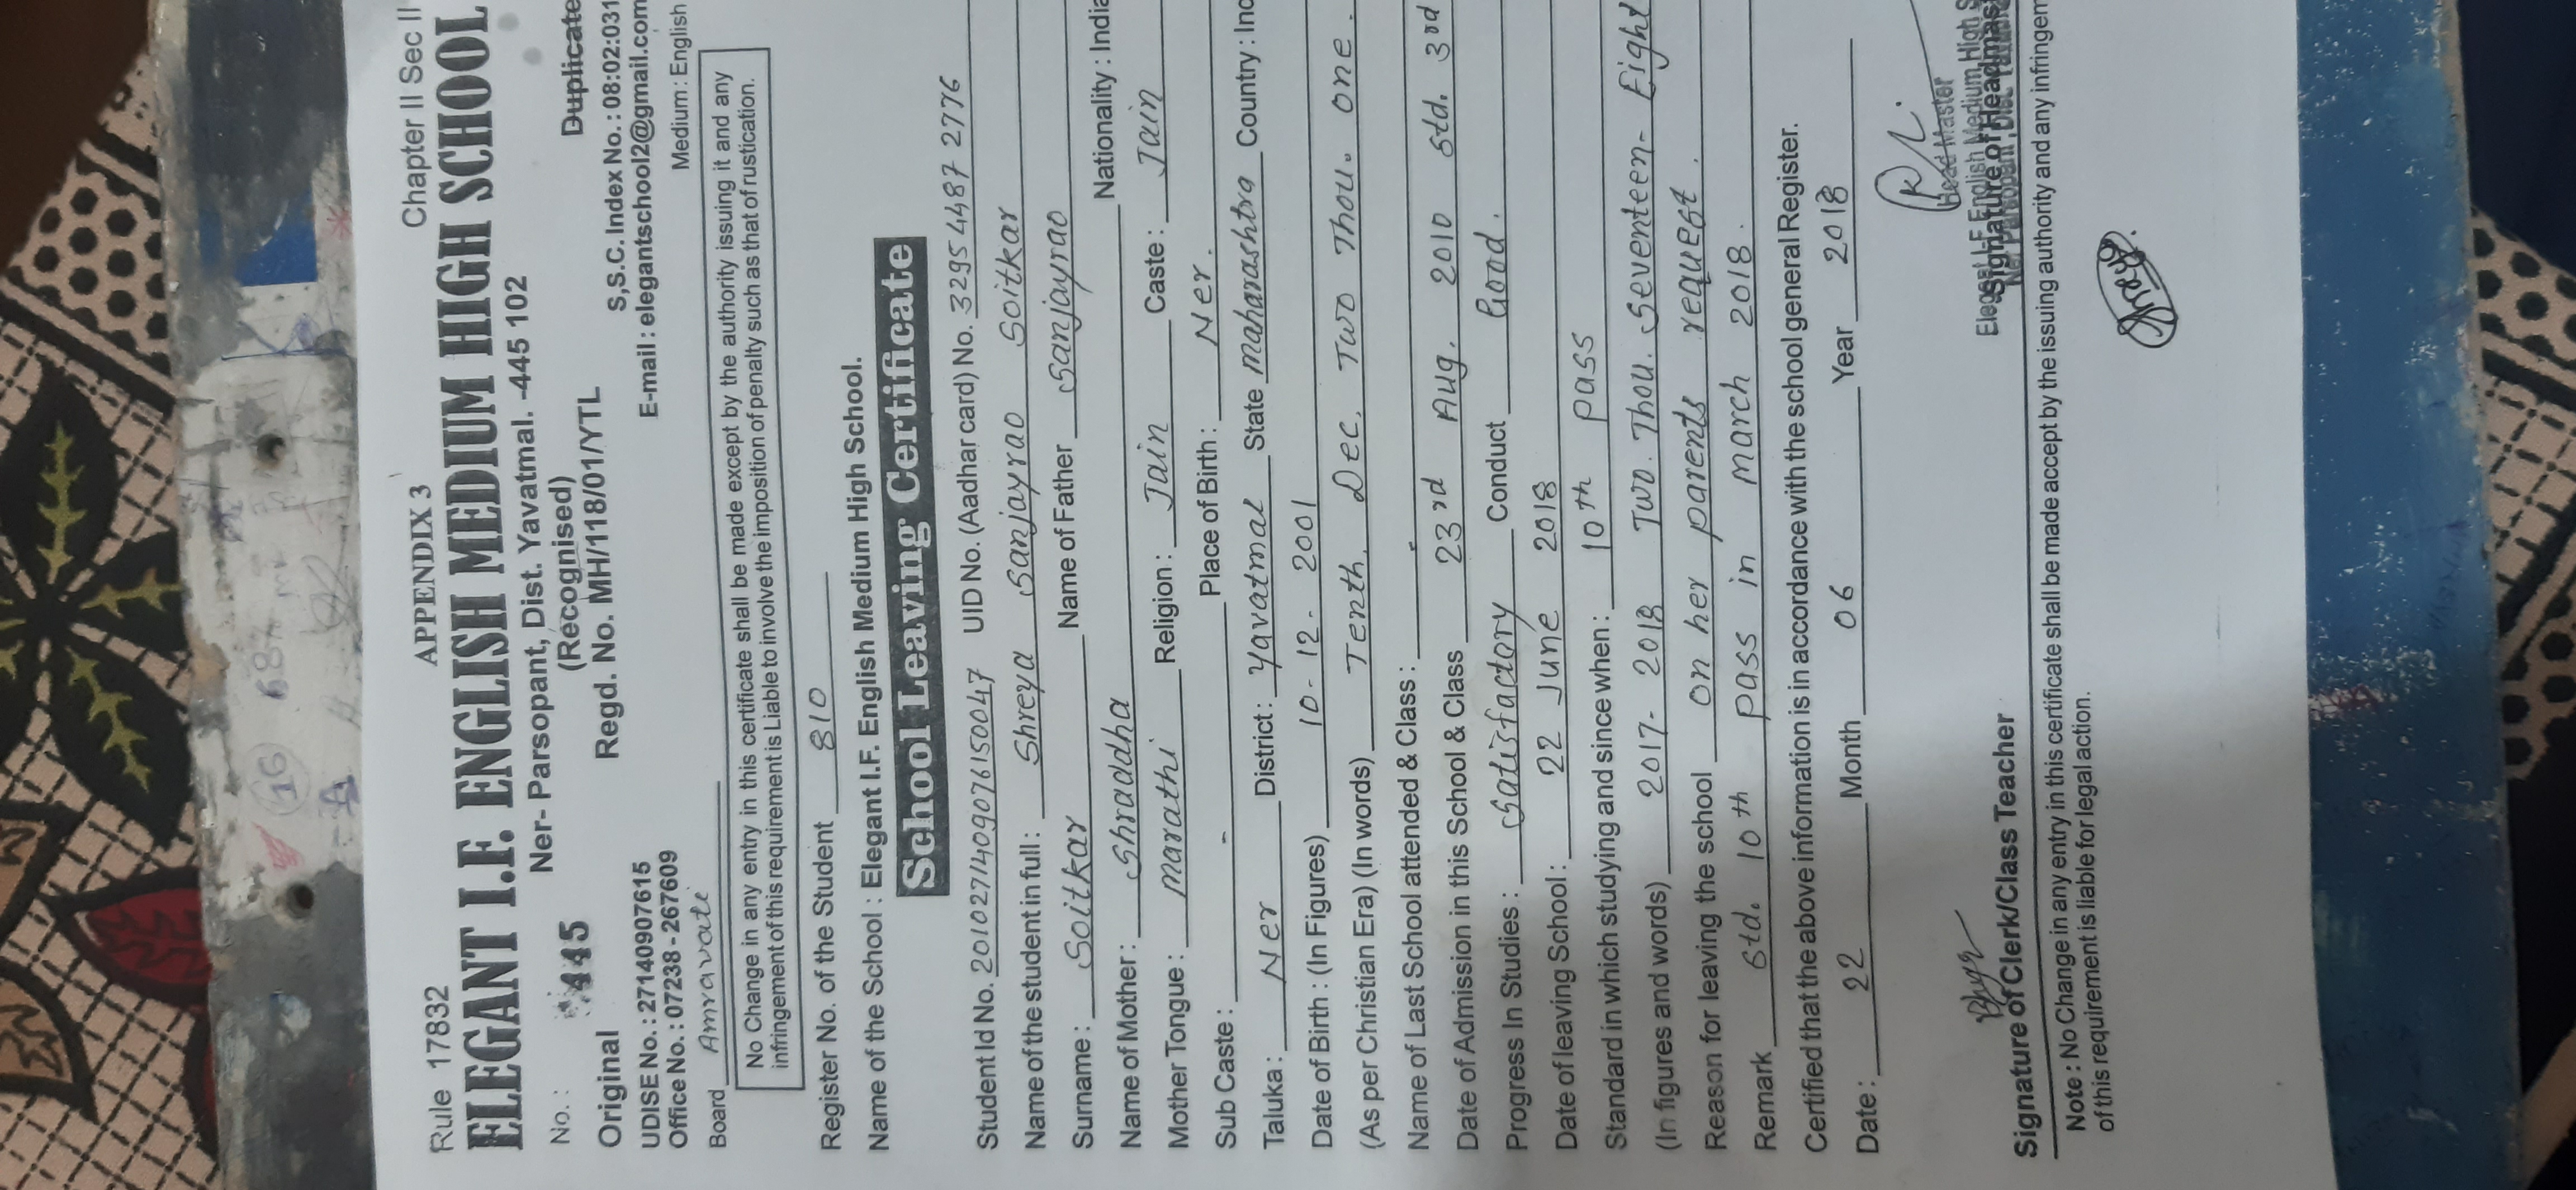 Rule 17832 APPENDIX 3 Chapter II Sec II
ELEGANT I.F. ENGLISH MEDIUM HIGH SCHOOL
Ner- Parsopant, Dist. Yavatmal. -445 102
No. : 445 (Recognised) Duplicate
Original Regd. No. MH/118/01/YTL S,S.C. Index No. : 08:02:031
UDISE No. : 27140907615 E-mail : elegantschool2@gmail.com
Office No. : 07238 - 267609 Medium : English
Board Amravati
No Change in any entry in this certificate shall be made except by the authority issuing it and any
infringement of this requirement is Liable to involve the imposition of penalty such as that of rustication.
Register No. of the Student 810
Name of the School : Elegant I.F. English Medium High School.
School Leaving Certificate
Student Id No. 2010271409076150047 UID No. (Aadhar card) No. 3295 4487 2776
Name of the student in full : Shreya Sanjayrao Soitkar
Surname : Soitkar Name of Father Sanjayrao
Name of Mother : Shraddha Nationality : India
Mother Tongue : marathi Religion : Jain Caste : Jain
Sub Caste : - Place of Birth : Ner.
Taluka : Ner District : Yavatmal State maharashtra Country : Ind
Date of Birth : (In Figures) 10 - 12 - 2001
(As per Christian Era) (In words) Tenth. Dec. Two Thou. One.
Name of Last School attended & Class :
Date of Admission in this School & Class 23rd Aug. 2010 Std. 3rd
Progress In Studies : Satisfactory Conduct Good.
Date of leaving School : 22 June 2018
Standard in which studying and since when : 10th pass
(In figures and words) 2017- 2018 Two. Thou. Seventeen- Eight
Reason for leaving the school on her parents request.
Remark Std. 10th pass in march 2018.
Certified that the above information is in accordance with the school general Register.
Date : 22 Month 06 Year 2018
Head Master
Elegant I.F. English Medium High S
Signature of Clerk/Class Teacher Signature of Headmast
Note : No Change in any entry in this certificate shall be made accept by the issuing authority and any infringem
of this requirement is liable for legal action.